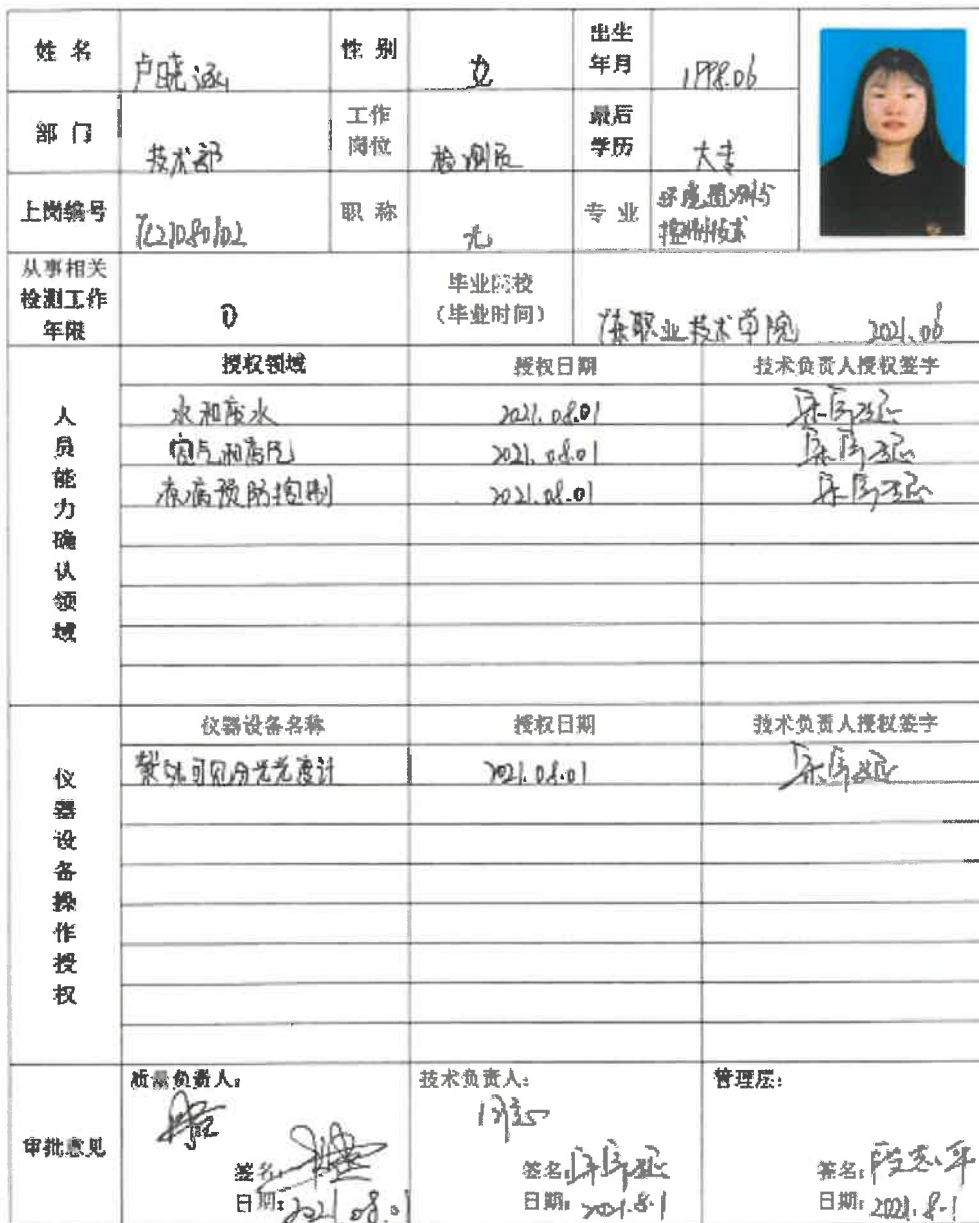 姓 名
卢晓
性 别
女
出生
年月
1998.06
部 门
技术部
工作
岗位
检测员
最后
学历
大专
上岗编号
职 称
无
专 业
环境监测与
控制技术
从事相关
检测工作
年限
0
毕业院校
(毕业时间)
职业技术学院 2021.06
人员能力确认领域
授权领域 授权日期 技术负责人授权签字
水和废水 2021.08.01
空气和废气 2021.08.01
疾病预防控制 2021.08.01
仪器设备操作授权
仪器设备名称 授权日期 技术负责人授权签字
紫外可见分光光度计 2021.08.01
审批意见
质量负责人:
签名:
日期: 2021.08.01
技术负责人:
同意
签名:
日期: 2021.8.1
管理层:
签名:
日期: 2021.8.1